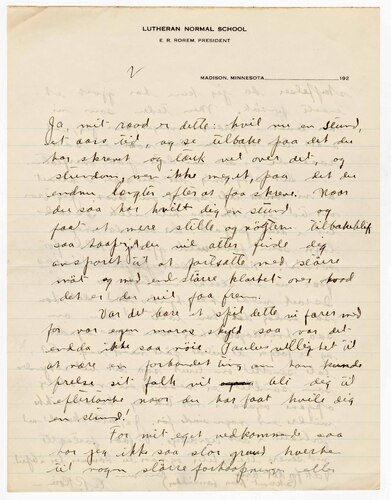 LUTHERAN NORMAL SCHOOL
E. R. ROREM, PRESIDENT
V
MADISON, MINNESOTA 192
Ja, mit raad er dette: hvil nu en stund,
et aars tid, og se tilbake paa det du
har skrevet og tænk ved over det, og
stundom, men ikke meget, paa det du
endnu længter efter at faa skrevet. Naar
du saa har hvilt dig en stund og
faat et mere stille og nögternt tilbakeblik
saa du vil alles finde dig
ansporet til at fortsætte med större
mót og med end större klarhet over hvad
det er du vil faa frem.
Var det bare et spil dette vi farer med
for vor egen moros skyld saa var det
endda ikke saa nöie. Paulus villighet til
at være en forbandet ting om han kunde
frelse sit folk vil bli dig til
eftertanke naar du har faat hvile dig
en stund!
For mit eget vedkommende saa
har jeg ikke saa stor grund hverken
til nogen större forhaapninger eller